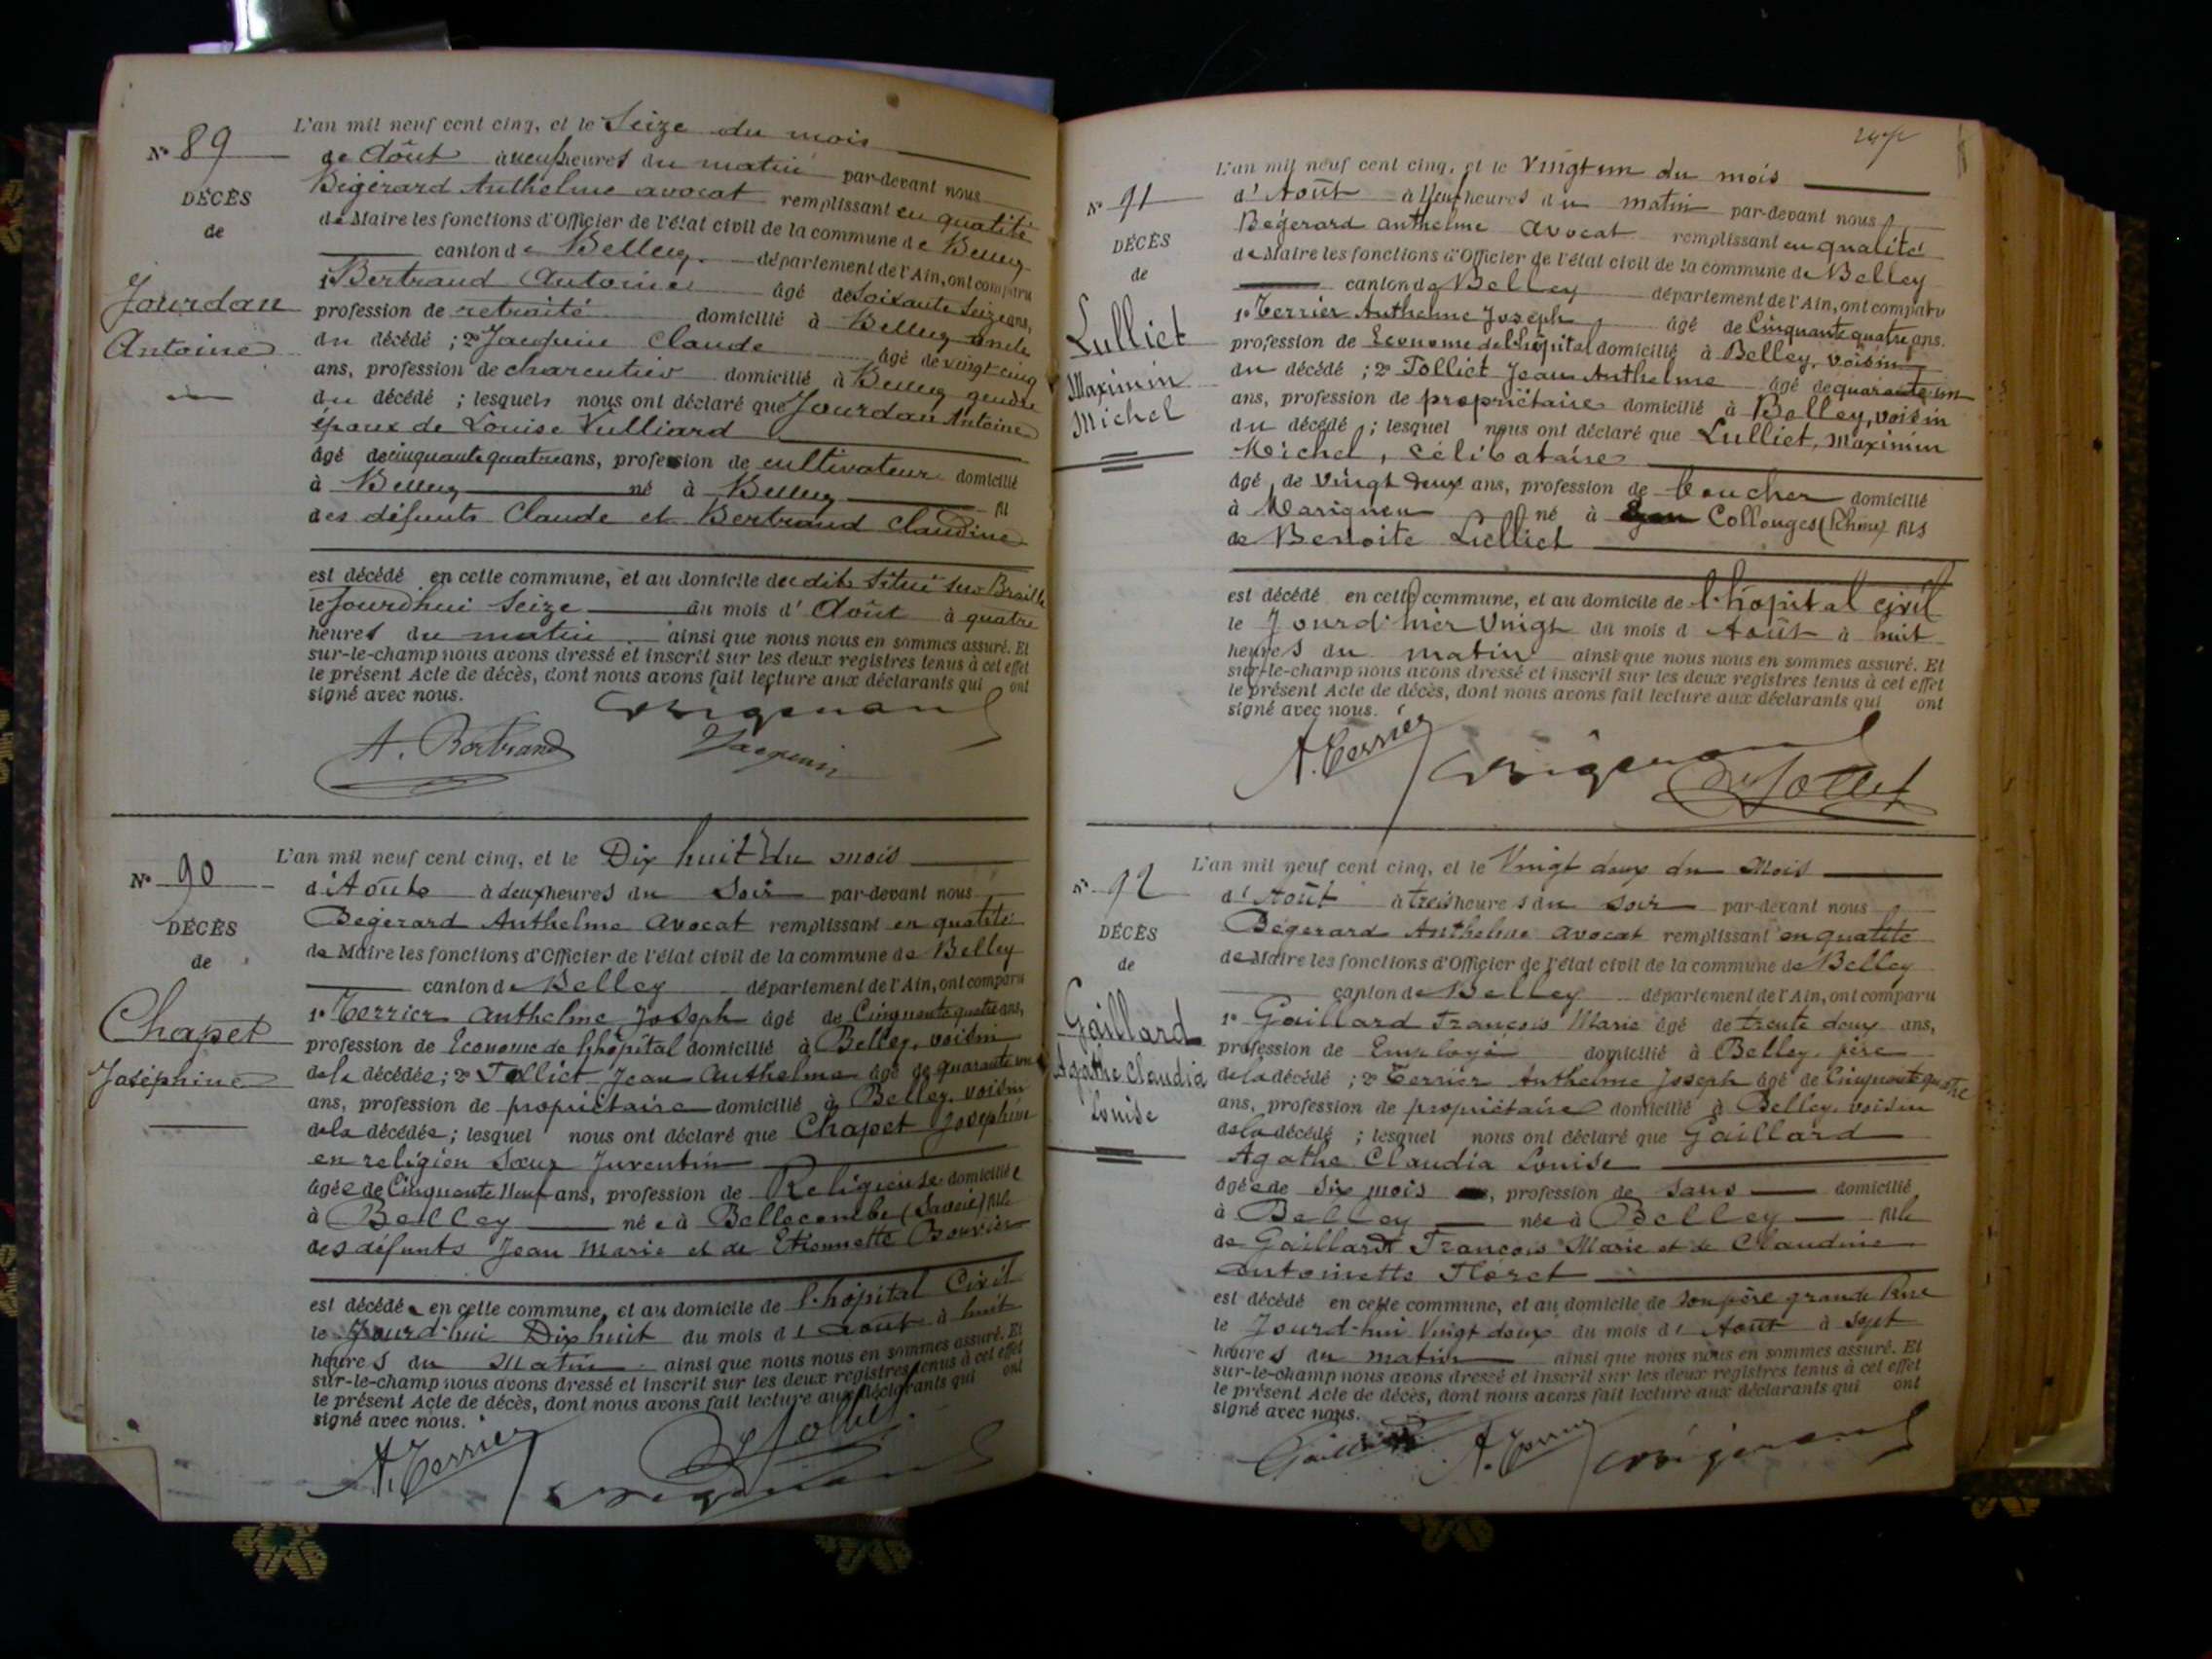 N° 89
DÉCÈS
de
Jourdan
Antoine
L'an mil neuf cent cinq, et le Seize du mois
de Août à neuf heures du matin par-devant nous
Bégérard Anthelme avocat remplissant en qualité
de Maire les fonctions d'Officier de l'état civil de la commune de Belley
canton de Belley département de l'Ain, ont comparu
1° Bertrand Antoine âgé de soixante seize ans,
profession de retraité domicilié à Belley oncle
du décédé ; 2° Jacquin Claude âgé de vingt cinq
ans, profession de charcutier domicilié à Belley gendre
du décédé ; lesquels nous ont déclaré que Jourdan Antoine
époux de Louise Vulliard
âgé de cinquante quatre ans, profession de cultivateur domicilié
à Belley né à Belley fil
des défunts Claude et Bertrand Claudine
est décédé en cette commune, et au domicile du dit situé sur
le jourdhui Seize du mois d' Août à quatre
heures du matin ainsi que nous nous en sommes assuré. Et
sur-le-champ nous avons dressé et inscrit sur les deux registres tenus à cet effet
le présent Acte de décès, dont nous avons fait lecture aux déclarants qui ont
signé avec nous.
A. Bertrand Jacquin
N° 90
DÉCÈS
de
Chapet
Joséphine
L'an mil neuf cent cinq, et le Dix huit du mois
d'Août à deux heures du Soir par-devant nous
Bégérard Anthelme avocat remplissant en qualité
de Maire les fonctions d'Officier de l'état civil de la commune de Belley
canton de Belley département de l'Ain, ont comparu
1° Terrier Anthelme Joseph âgé de Cinquante quatre ans,
profession de Econome de l'hôpital domicilié à Belley, voisin
de la décédée ; 2° Tolliet Jean Anthelme âgé de quarante un
ans, profession de propriétaire domicilié à Belley, voisin
de la décédée ; lesquel nous ont déclaré que Chapet Joséphine
en religion Sœur Juventin
âgée de Cinquante Neuf ans, profession de Religieuse domiciliée
à Belley née à Bellecombe (Savoie) fille
des défunts Jean Marie et de Etiennette Bouvier
est décédée en cette commune, et au domicile de l'hôpital Civil
le Jourd'hui Dix huit du mois d' Août à huit
heures du Matin ainsi que nous nous en sommes assuré. Et
sur-le-champ nous avons dressé et inscrit sur les deux registres tenus à cet effet
le présent Acte de décès, dont nous avons fait lecture aux déclarants qui ont
signé avec nous.
A. Terrier Tolliet
N° 91
DÉCÈS
de
Lulliet
Maximin
Michel
L'an mil neuf cent cinq, et le Vingt un du mois
d'Août à Neuf heures du matin par-devant nous
Bégerard anthelme avocat remplissant en qualité
de Maire les fonctions d'Officier de l'état civil de la commune de Belley
canton de Belley département de l'Ain, ont comparu
1° Terrier Anthelme Joseph âgé de Cinquante quatre ans.
profession de Econome de l'hôpital domicilié à Belley, voisin
du décédé ; 2° Tolliet Jean Anthelme âgé de quarante un
ans, profession de propriétaire domicilié à Belley, voisin
du décédé ; lesquel nous ont déclaré que Lulliet, Maximin
Michel, Célibataire
âgé de Vingt deux ans, profession de boucher domicilié
à Marignieu né à Collonges (Rhône) fils
de Benoite Lulliet
est décédé en cette commune, et au domicile de l'hôpital civil
le Jourd'hier Vingt du mois d Août à huit
heures du matin ainsi que nous nous en sommes assuré. Et
sur-le-champ nous avons dressé et inscrit sur les deux registres tenus à cet effet
le présent Acte de décès, dont nous avons fait lecture aux déclarants qui ont
signé avec nous.
A. Terrier Tolliet
N° 92
DÉCÈS
de
Gaillard
Agathe Claudia
Louise
L'an mil neuf cent cinq, et le Vingt deux du Mois
d'Août à trois heures du soir par-devant nous
Bégerard Anthelme avocat remplissant en qualité
de Maire les fonctions d'Officier de l'état civil de la commune de Belley
canton de Belley département de l'Ain, ont comparu
1° Gaillard François Marie âgé de trente deux ans,
profession de Employé domicilié à Belley, père
de la décédé ; 2° Terrier Anthelme Joseph âgé de Cinquante quatre
ans, profession de propriétaire domicilié à Belley, voisin
de la décédé ; lesquel nous ont déclaré que Gaillard
Agathe Claudia Louise
âgée de Six mois, profession de sans domicilié
à Belley née à Belley fille
de Gaillard François Marie et de Claudine
Antoinette Floret
est décédé en cette commune, et au domicile de son père grande Rue
le Jourd'hui Vingt deux du mois d' Août à Sept
heures du matin ainsi que nous nous en sommes assuré. Et
sur-le-champ nous avons dressé et inscrit sur les deux registres tenus à cet effet
le présent Acte de décès, dont nous avons fait lecture aux déclarants qui ont
signé avec nous.
Gaillard A. Terrier